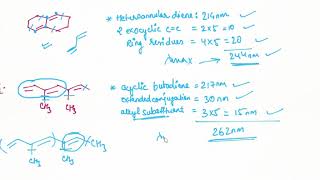 * Heteroannular diene: 214nm
2 exocyclic c=c = 2x5 = 10
Ring residues = 4x5 = 20
λmax → 244nm
* acyclic butadiene = 217nm
extended conjugation = 30nm
alkyl substituent = 3x5 = 15nm
262nm
CH3
CH3
CH3
CH3